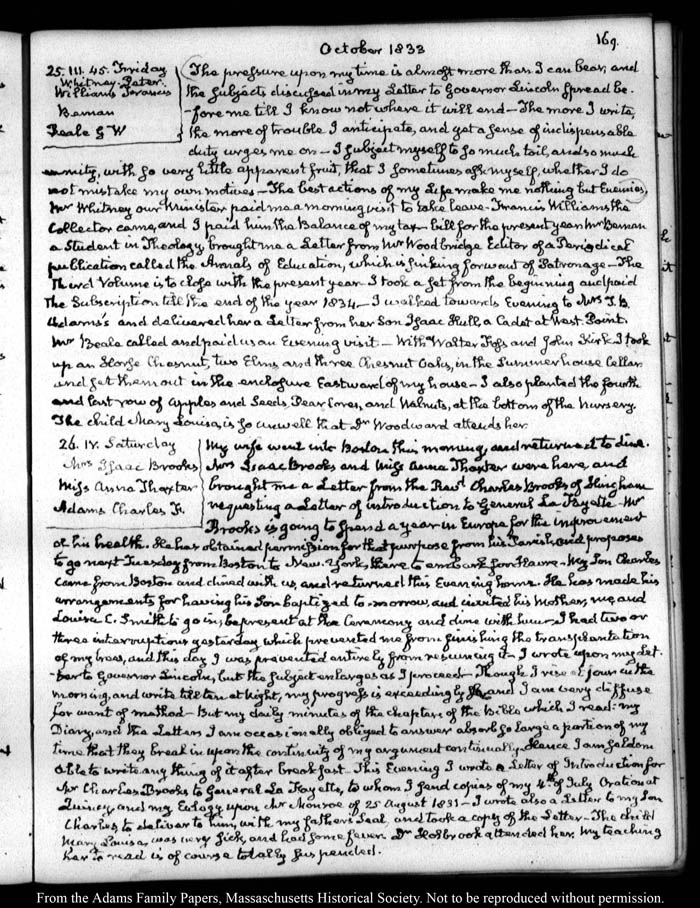 October 1833
169.
25. III. 45. Friday
Whitney. Peter.
Williams Francis
Beman
Beale G W
The pressure upon my time is almost more than I can bear, and
the subjects discussed in my Letter to Governor Lincoln spread be-
fore me till I know not where it will end — The more I write,
the more of trouble I anticipate, and yet a sense of indispensable
duty urges me on — I subject myself to so much toil, and so much
enmity, with so very little apparent fruit, that I sometimes ask myself, whether I do
not mistake my own motives — The best actions of my Life make me nothing but Enemies,
Mr Whitney our Minister paid me a morning visit to take leave. Francis Williams the
Collector came, and I paid him the Balance of my tax-bill for the present year. Mr Beman
a Student in Theology, brought me a Letter from Mr Woodbridge Editor of a Periodical
publication called the Annals of Education, which is sinking for want of Patronage — The
Third Volume is to close with the present year. I took a set from the beginning and paid
The Subscription till the end of the year 1834 — I walked towards Evening to Mrs T. B.
Adams's and delivered her a Letter from her Son Isaac Hull, a Cadet at West Point.
Mr Beale called and paid us an Evening visit — With Walter Foss and John Kirk I took
up an Horse Chesnut, two Elms and three Chesnut Oaks, in the Summer house Cellar
and set them out in the enclosure Eastward of my house — I also planted the fourth
and last row of Apples and Seeds, Pear Cores, and Walnuts, at the bottom of the Nursery.
The child Mary Louisa, is so unwell that Dr Woodward attends her.
26. IV. Saturday
Mrs Isaac Brooks
Miss Anna Thaxter
Adams Charles F.
My wife went into Boston this morning, and returned to dine.
Mrs Isaac Brooks and Miss Anna Thaxter were here, and
brought me a Letter from the Revd Charles Brooks of Hingham
requesting a Letter of introduction to General La Fayette — Mr
Brooks is going to spend a year in Europe for the improvement
of his health. He has obtained permission for that purpose from his Parish, and proposes
to go next Tuesday from Boston to New-York, there to embark for Havre — My Son Charles
came from Boston and dined with us, and returned this Evening home. He has made his
arrangements for having his Son baptized to-morrow, and invited his Mother, me and
Louisa C. Smith to go in, be present at the Ceremony and dine with him — I had two or
three interruptions yesterday which prevented me from finishing the transplantation
of my trees, and this day I was prevented entirely from resuming it — I wrote upon my Let-
ter to Governor Lincoln, but the subject enlarges as I proceed — Though I rise at four in the
morning, and write till ten at Night, my progress is exceedingly slow and I am very diffuse
for want of method — But my daily minutes of the chapters of the Bible which I read: my
Diary, and the Letters I am occasionally obliged to answer absorb so large a portion of my
time that they break in upon the continuity of my argument continually. Hence I am seldom
able to write any thing of it after breakfast. This Evening I wrote a Letter of Introduction for
Mr Charles Brooks to General La Fayette, to whom I send copies of my 4th of July Oration at
Quincy, and my Eulogy upon Mr Monroe of 25 August 1831 — I wrote also a Letter to my Son
Charles to deliver to him, with my father's Seal, and took a copy of the Letter — The child
Mary Louisa, was very sick, and had some fever. Dr Holbrook attended her. My teaching
her to read is of course totally suspended.
From the Adams Family Papers, Massachusetts Historical Society. Not to be reproduced without permission.